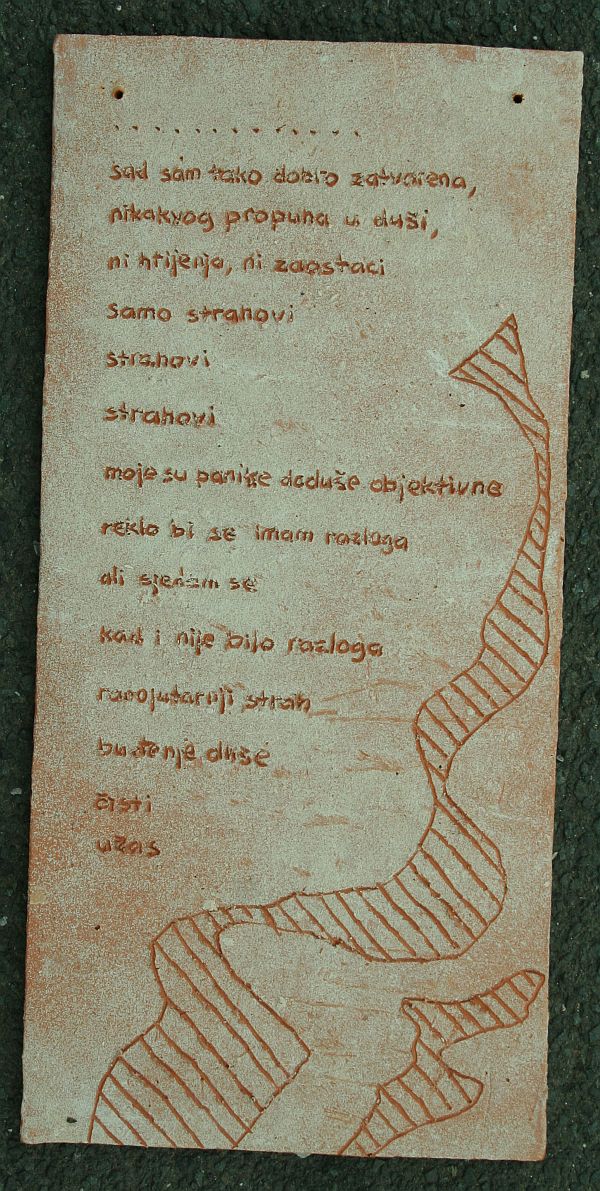 . . . . . . . . . . . . . .
sad sam tako dobro zatvorena,
nikakvog propuha u duši,
ni htijenja, ni zaostaci
samo strahovi
strahovi
strahovi
moje su panike doduše objektivne
reklo bi se imam razloga
ali sjećam se
kad i nije bilo razloga
ranojutarnji strah
buđenje duše
čisti
užas